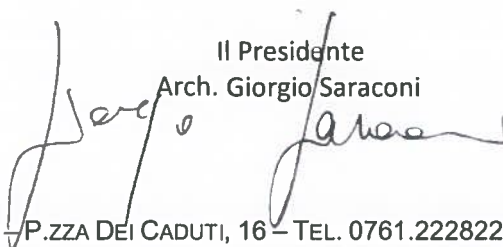 Il Presidente
Arch. Giorgio Saraconi
– P.ZZA DEI CADUTI, 16 – TEL. 0761.222822